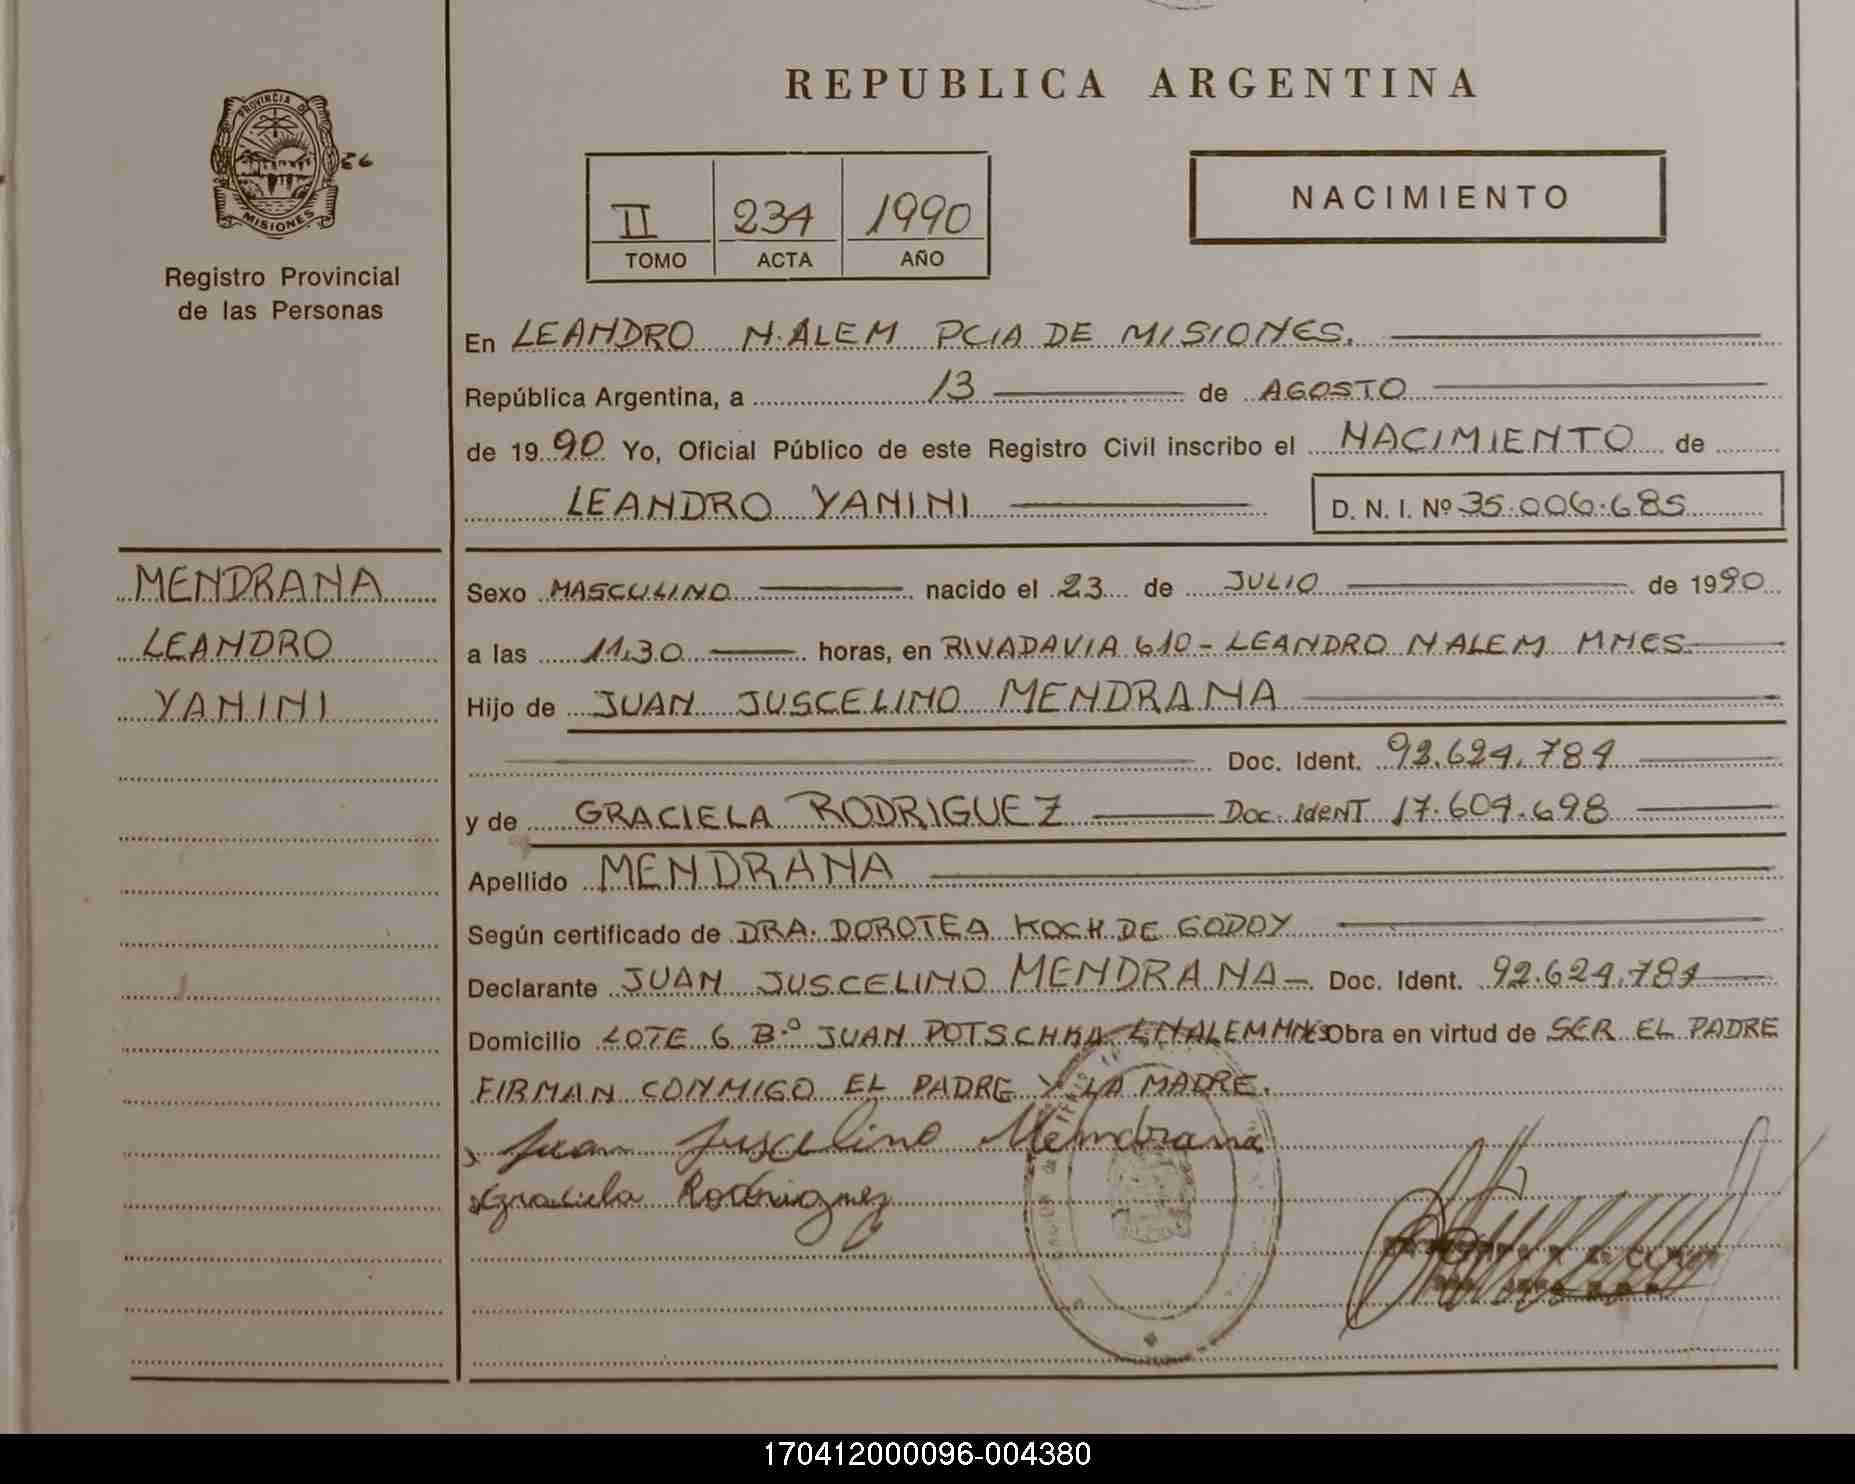 REPUBLICA ARGENTINA
PROVINCIA DE
MISIONES
Registro Provincial
de las Personas
II 234 1990
TOMO ACTA AÑO
NACIMIENTO
En LEANDRO N. ALEM PCIA DE MISIONES.
República Argentina, a 13 de AGOSTO
de 1990 Yo, Oficial Público de este Registro Civil inscribo el NACIMIENTO de
LEANDRO YANINI D. N. I. Nº 35.006.685
MENDRANA
LEANDRO
YANINI
Sexo MASCULINO nacido el 23 de JULIO de 1990
a las 11,30 horas, en RIVADAVIA 610 - LEANDRO N ALEM MNES
Hijo de JUAN JUSCELINO MENDRANA
Doc. Ident. 92.624.784
y de GRACIELA RODRIGUEZ Doc. IdenT 17.609.698
Apellido MENDRANA
Según certificado de DRA. DOROTEA KOCH DE GODOY
Declarante JUAN JUSCELINO MENDRANA - Doc. Ident. 92.624.784
Domicilio LOTE 6 B.º JUAN POTSCHKA LNALEM MNES Obra en virtud de SER EL PADRE
FIRMAN CONMIGO EL PADRE Y LA MADRE.
Juan Juscelino Mendrana
Graciela Rodriguez
170412000096-004380